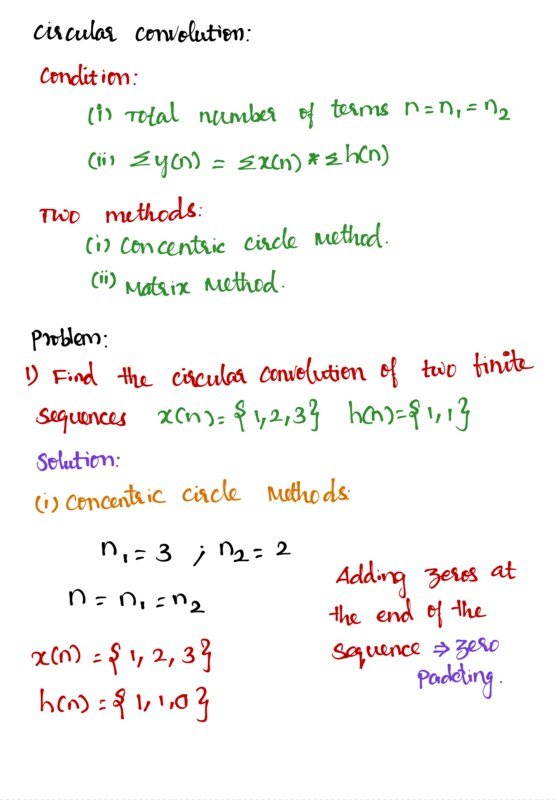 Circular convolution:
Condition:
(i) Total number of terms n = n₁ = n₂
(ii) ≤y(n) = ≤x(n) * ≤h(n)
Two methods:
(i) Concentric circle method.
(ii) Matrix Method.
Problem:
1) Find the circular convolution of two finite
sequences x(n) = {1, 2, 3} h(n) = {1, 1}
Solution:
(i) Concentric circle Methods:
n₁ = 3 ; n₂ = 2
n = n₁ = n₂
x(n) = {1, 2, 3}
h(n) = {1, 1, 0}
Adding zeros at
the end of the
sequence ⇒ zero
Padding.